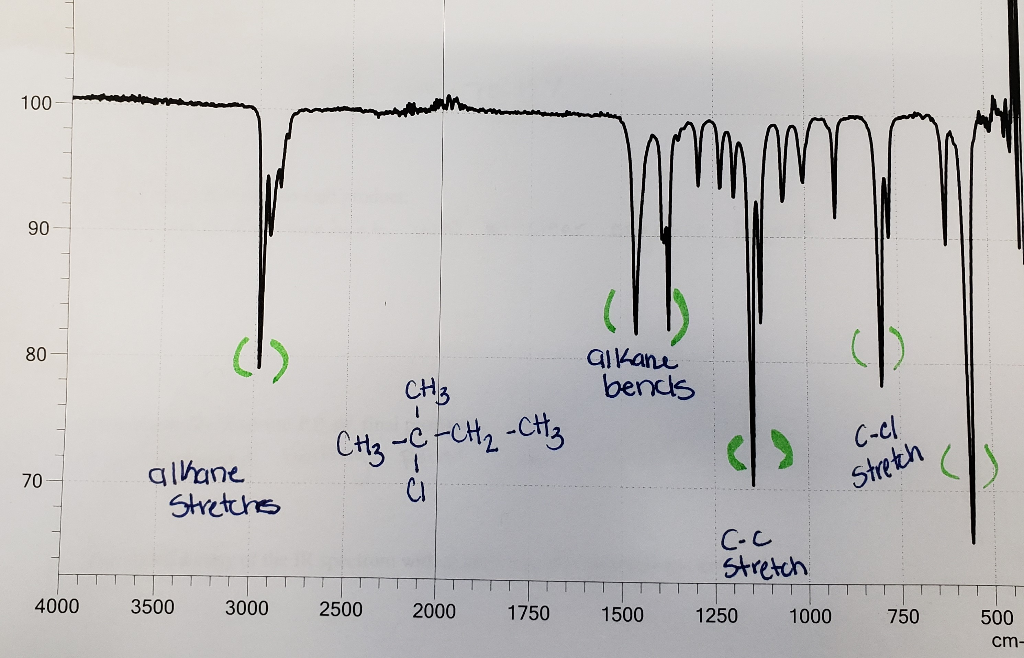 100
90
80
70
alkane
bends
CH3
CH3 -C -CH2 -CH3
Cl
alkane
stretches
C-Cl
stretch
C-C
stretch
4000 3500 3000 2500 2000 1750 1500 1250 1000 750 500
cm-